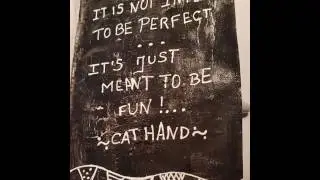 IT IS NOT
TO BE PERFECT
...
IT'S JUST
MEANT TO BE
FUN!...
~CAT HAND~